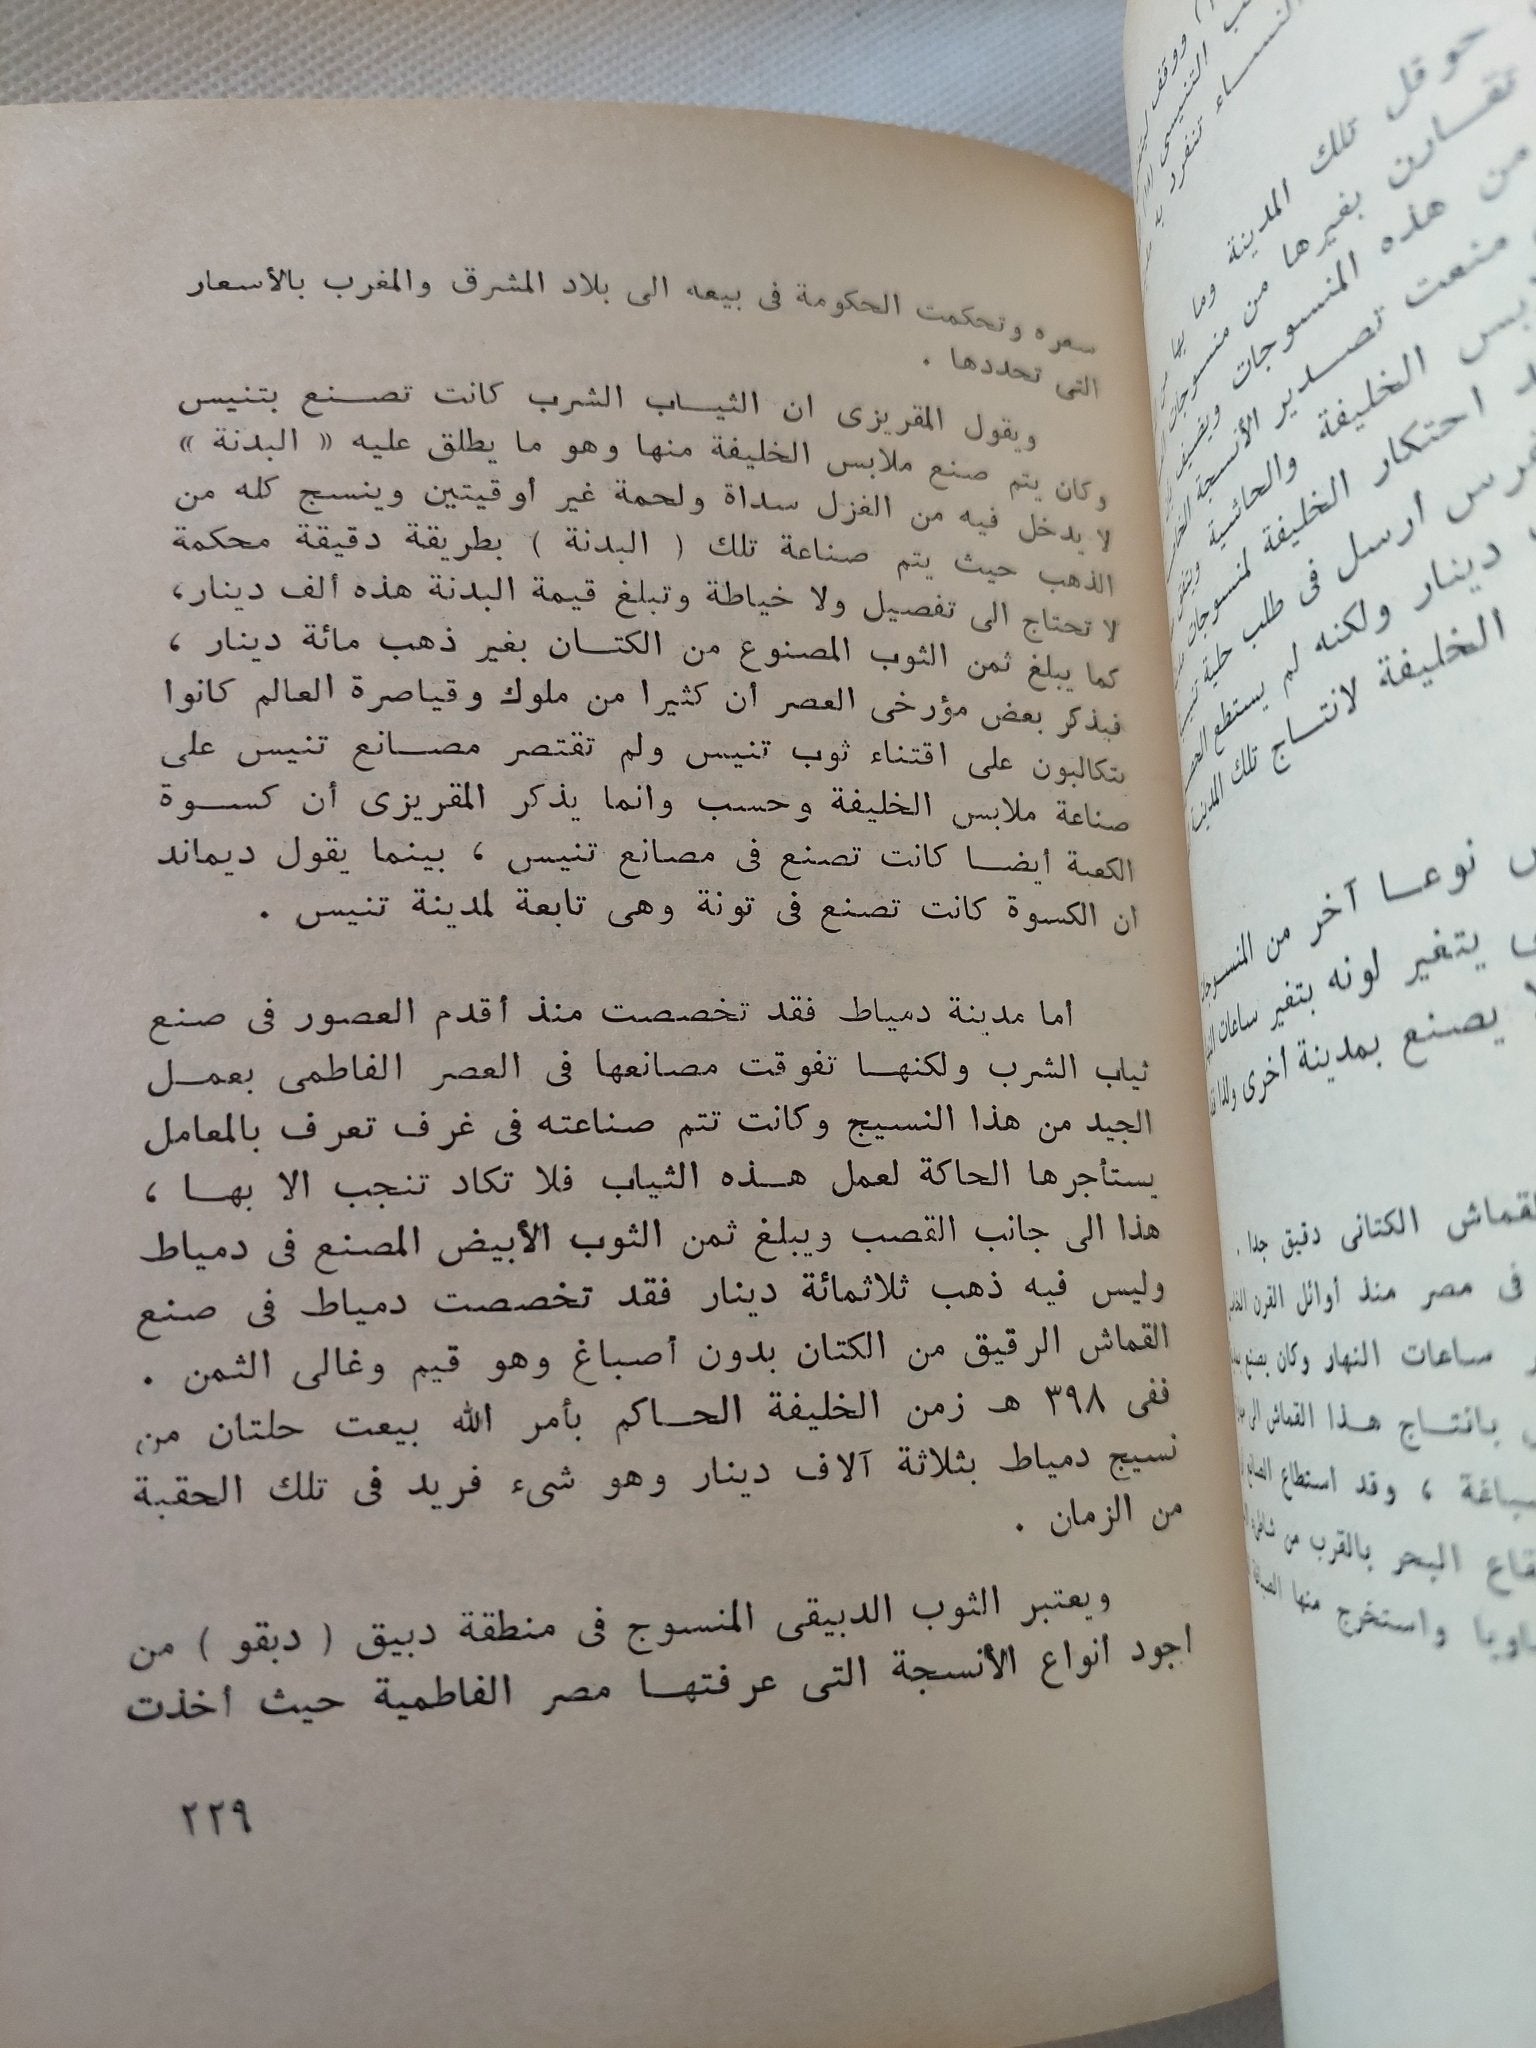 سعره وتحكمت الحكومة فى بيعه الى بلاد المشرق والمغرب بالأسعار
التى تحددها .
ويقول المقريزى ان الثيــاب الشرب كانت تصــنع بتنيس
وكان يتم صنع ملابس الخليفة منها وهو ما يطلق عليه « البدنة »
لا يدخل فيه من الغزل سداة ولحمة غير أوقيتين وينسج كله من
الذهب حيث يتم صناعة تلك ( البدنة ) بطريقة دقيقة محكمة
لا تحتاج الى تفصيل ولا خياطة وتبلغ قيمة البدنة هذه ألف دينار،
كما يبلغ ثمن الثوب المصنوع من الكتــان بغير ذهب مائة دينار ،
فيذكر بعض مؤرخى العصر أن كثيرا من ملوك وقياصرة العالم كانوا
يتكالبون على اقتناء ثوب تنيس ولم تقتصر مصــانع تنيس على
صناعة ملابس الخليفة وحسب وانما يذكر المقريزى أن كســوة
الكعبة أيضــا كانت تصنع فى مصانع تنيس ، بينما يقول ديماند
ان الكسوة كانت تصنع فى تونة وهى تابعة لمدينة تنيس .
أما مدينة دمياط فقد تخصصت منذ أقدم العصور فى صنع
ثياب الشرب ولكنهــا تفوقت مصانعها فى العصر الفاطمى بعمــل
الجيد من هذا النسيج وكانت تتم صناعته فى غرف تعرف بالمعامل
يستأجرها الحاكة لعمل هــذه الثياب فلا تكاد تنجب الا بهــا ،
هذا الى جانب القصب ويبلغ ثمن الثوب الأبيض المصنع فى دمياط
وليس فيه ذهب ثلاثمائة دينار فقد تخصصت دمياط فى صنع
القماش الرقيق من الكتان بدون أصباغ وهو قيم وغالى الثمن .
ففى ٣٩٨ هـ زمن الخليفة الحــاكم بأمر الله بيعت حلتان من
نسيج دمياط بثلاثة آلاف دينار وهو شىء فريد فى تلك الحقبة
من الزمان .
ويعتبر الثوب الدبيقى المنسوج فى منطقة دبيق ( دبقو ) من
أجود أنواع الأنسجة التى عرفتهــا مصر الفاطمية حيث أخذت
٢٢٩
حوقل تلك المدينة وما بها من
تقــارن بغيرها من منسوجات
من هذه المنسوجات ويضيف
منعت تصــدير الأنسجة
الخليفة والحاشية
احتكار الخليفة لمنسوجات
ارسل فى طلب حلية
دينار ولكنه لم يستطع
الخليفة لانتــاج تلك المدينة
نوعــا آخر من
يتغير لونه بتغير ساعات
يصنع بمدينة أخرى
الكتانى دقيق جدا .
فى مصر منذ أوائل القرن
ساعات النهار وكان يصنع
بانتــاج هــذا القماش الى
، وقد استطاع
البحر بالقرب من
واستخرج منها